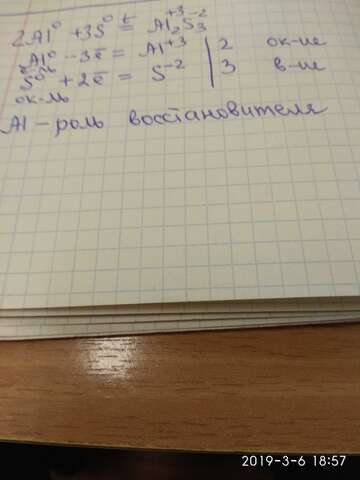 2Al⁰ + 3S⁰ t= Al₂⁺³S₃⁻²
Al⁰ - 3e̅ = Al⁺³ | 2 ок-ие
S⁰ + 2e̅ = S⁻² | 3 в-ие
ок-ль
Al - роль восстановителя
2019-3-6 18:57